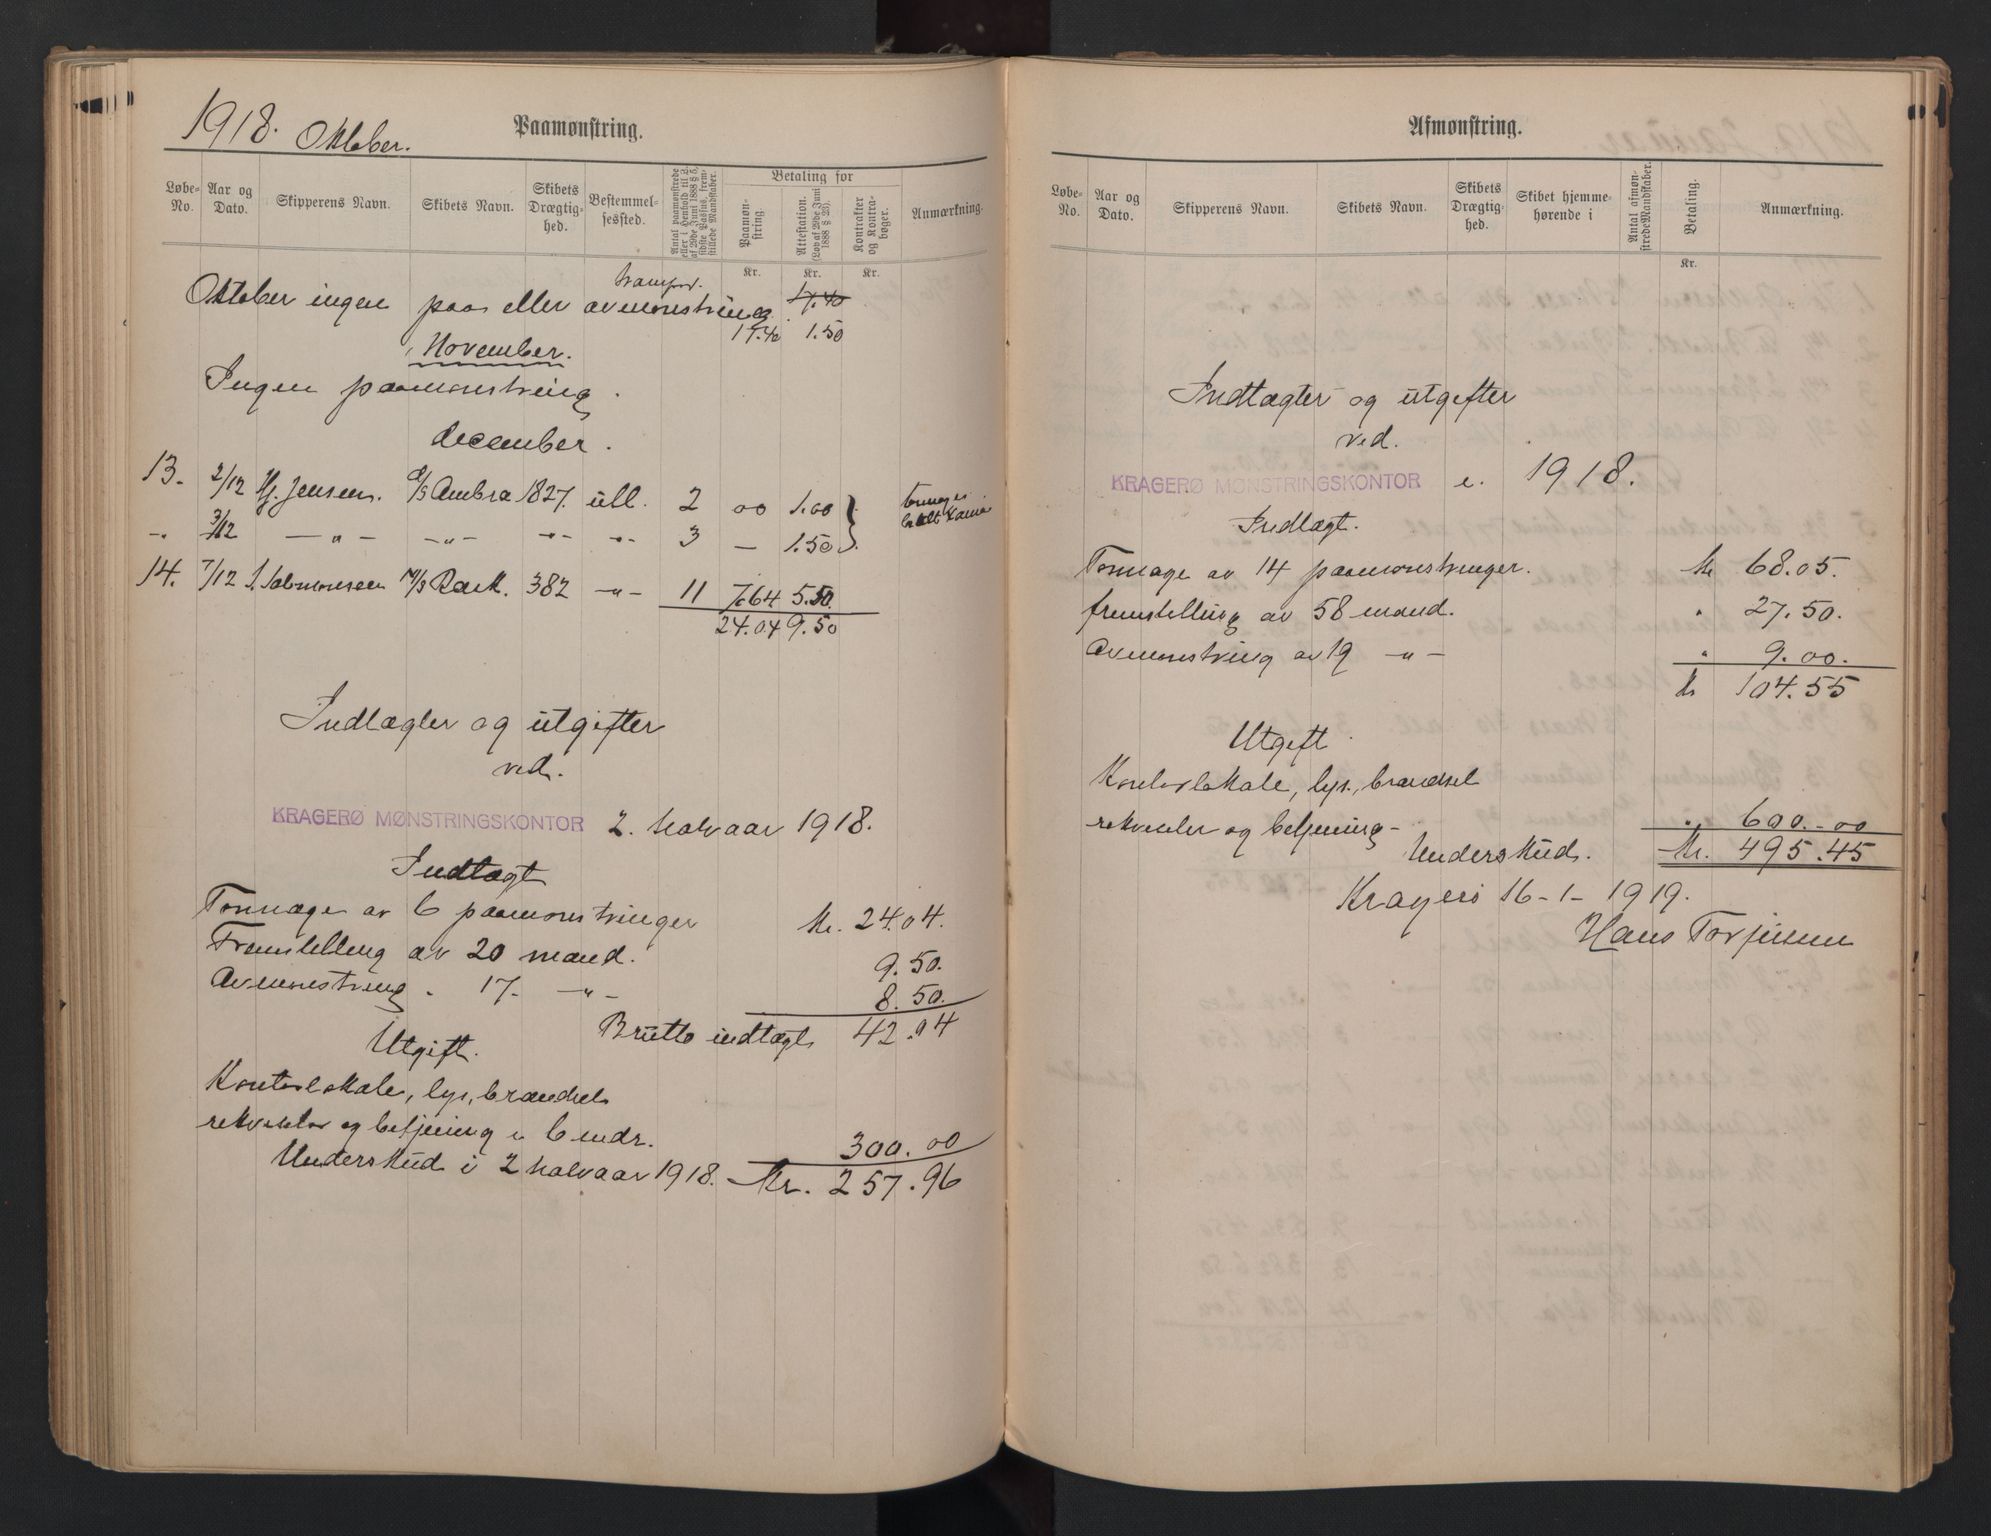 1918. Oktober.
Paamønstring.
Løbe-No.
Aar og Dato.
Skipperens Navn.
Skibets Navn.
Skibets Drægtig-hed.
Bestemmel-sessted.
Antal paamønstrede eller i Henhold til 2. af 29de Juni 1888 § 5, sidste Passus, frem-stillede Mandskaber.
Betaling for
Paamøn-string.
Attestation. (Lov af 29de Juni 1888 § 23).
Kontrakter og Kontra-bøger.
Anmærkning.
Kr. Kr. Kr.
transport. 17.40
Oktober ingen paa eller avmønstring.
17.40 1.50
November.
Ingen paamønstring.
december.
13. 2/12 Hj. Jensen. D/S Ambra 1827. utl. 2 00 1.00
-"- 3/12 —"— —"— —"— —"— 3 — 1.50
14. 7/12 S. Salomonsen M/S Bark. 382 —"— 11 7.64 5.50.
24.04 9.50
Indtægter og utgifter
ved.
KRAGERØ MØNSTRINGSKONTOR 2. halvaar 1918.
Indtægt
Tonnage av 6 paamønstringer Kr. 24.04.
Fremstilling av 20 mand. 9.50.
Avmønstring. 17. —"— 8.50.
Brutto indtægt 42.04
Utgift.
Kontorlokale, lys, brændsel
rekvisitor og betjening i 6 mdr. 300.00
Underskud i 2 halvaar 1918. Kr. 257.96
Afmønstring.
Løbe-No.
Aar og Dato.
Skipperens Navn.
Skibets Navn.
Skibets Drægtig-hed.
Skibet hjemme-hørende i
Antal afmøn-strede Mandskaber.
Betaling.
Anmærkning.
Kr.
Indtægter og utgifter
ved.
KRAGERØ MØNSTRINGSKONTOR i. 1918.
Indtægt.
Tonnage av 14 paamønstringer. Kr 68.05.
fremstilling av 58 mand. " 27.50.
Avmønstring av 19 —"— " 9.00.
Kr 104.55
Utgift.
Kontorlokale, lys, brændsel
rekvisitor og betjening — " 600.-00
Underskud. Kr. 495.45
Kragerø 16-1-1919.
Hans Torjusen